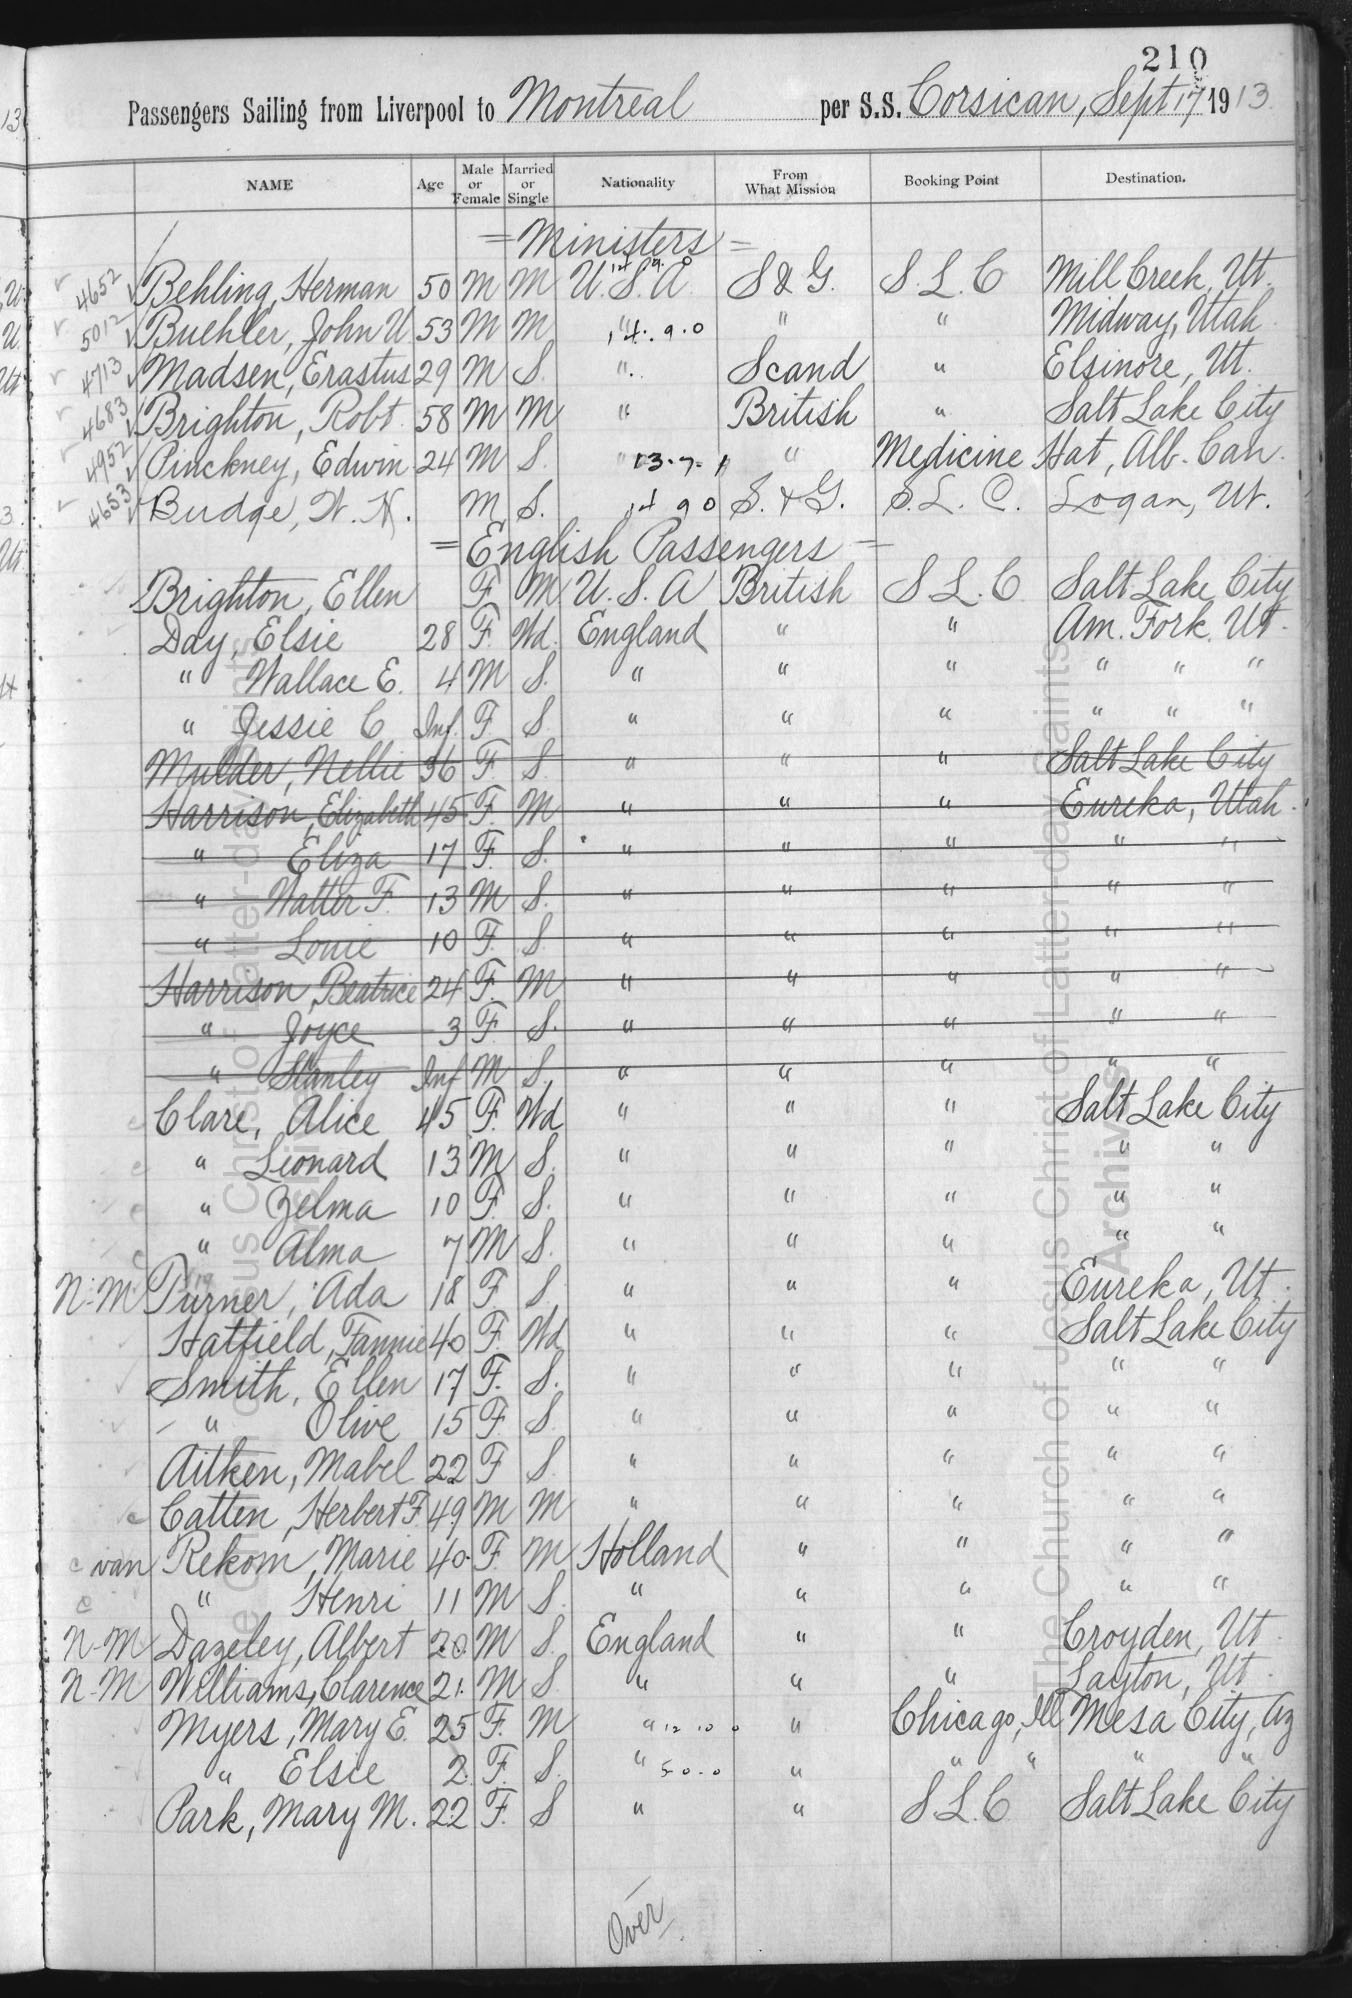 210
Passengers Sailing from Liverpool to Montreal per S.S. Corsican, Sept 17 1913.
NAME Age Male or Female Married or Single Nationality From What Mission Booking Point Destination.
= Ministers =
4652 Behling, Herman 50 M M U.S.A. 14.9.0 S & G. S.L.C Mill Creek, Ut.
5012 Buehler, John U. 53 M M " 14.9.0 " " Midway, Utah
4713 Madsen, Erastus 29 M S. " Scand " Elsinore, Ut.
4683 Brighton, Robt. 58 M M " British " Salt Lake City
4952 Pinckney, Edwin 24 M S. " 13-7- " Medicine Hat, Alb. Can.
4653 Budge, W. M S. 14 9 0 S. & G. S.L.C. Logan, Ut.
= English Passengers =
Brighton, Ellen F. M U.S.A British S.L.C Salt Lake City
Day, Elsie 28 F. Wd. England " " Am. Fork, Ut.
" Wallace E. 4 M S. " " " " " "
" Jessie C. Inf. F. S. " " " " " "
Mulder, Nellie 36 F. S. " " " Salt Lake City
Harrison, Elizabeth 45 F. M " " " Eureka, Utah.
" Eliza 17 F. S. " " " " "
" Walter F. 13 M S. " " " " "
" Louie 10 F. S. " " " " "
Harrison, Beatrice 24 F. M " " " " "
" Joyce 3 F. S. " " " " "
" Stanley Inf M S. " " " " "
c Clare, Alice 45 F. Wd " " " Salt Lake City
c " Leonard 13 M S. " " " " "
c " Zelma 10 F. S. " " " " "
c " Alma 7 M S. " " " " "
N-M Turner, Ada 18 F. S. " " " Eureka, Ut.
Hatfield, Fannie 40 F. Wd " " " Salt Lake City
Smith, Ellen 17 F. S. " " " " "
" Olive 15 F. S. " " " " "
Aitken, Mabel 22 F S. " " " " "
c Catten, Herbert F. 49 M M " " " " "
c van Rekom, Marie 40 F. M Holland " " " "
c " Henri 11 M S. " " " " "
N-M Dazeley, Albert 20 M S. England " " Croyden, Ut.
N-M Williams, Clarence 21. M S. " " " Layton, Ut.
Myers, Mary E. 25 F. M " 12 10 0 " Chicago, Ill Mesa City, Az
" Elsie 2. F. S. " 5-0-0 " " " " "
Park, Mary M. 22 F. S " " S.L.C Salt Lake City
Over
The Church of Jesus Christ of Latter-day Saints
Archives
The Church of Jesus Christ of Latter-day Saints